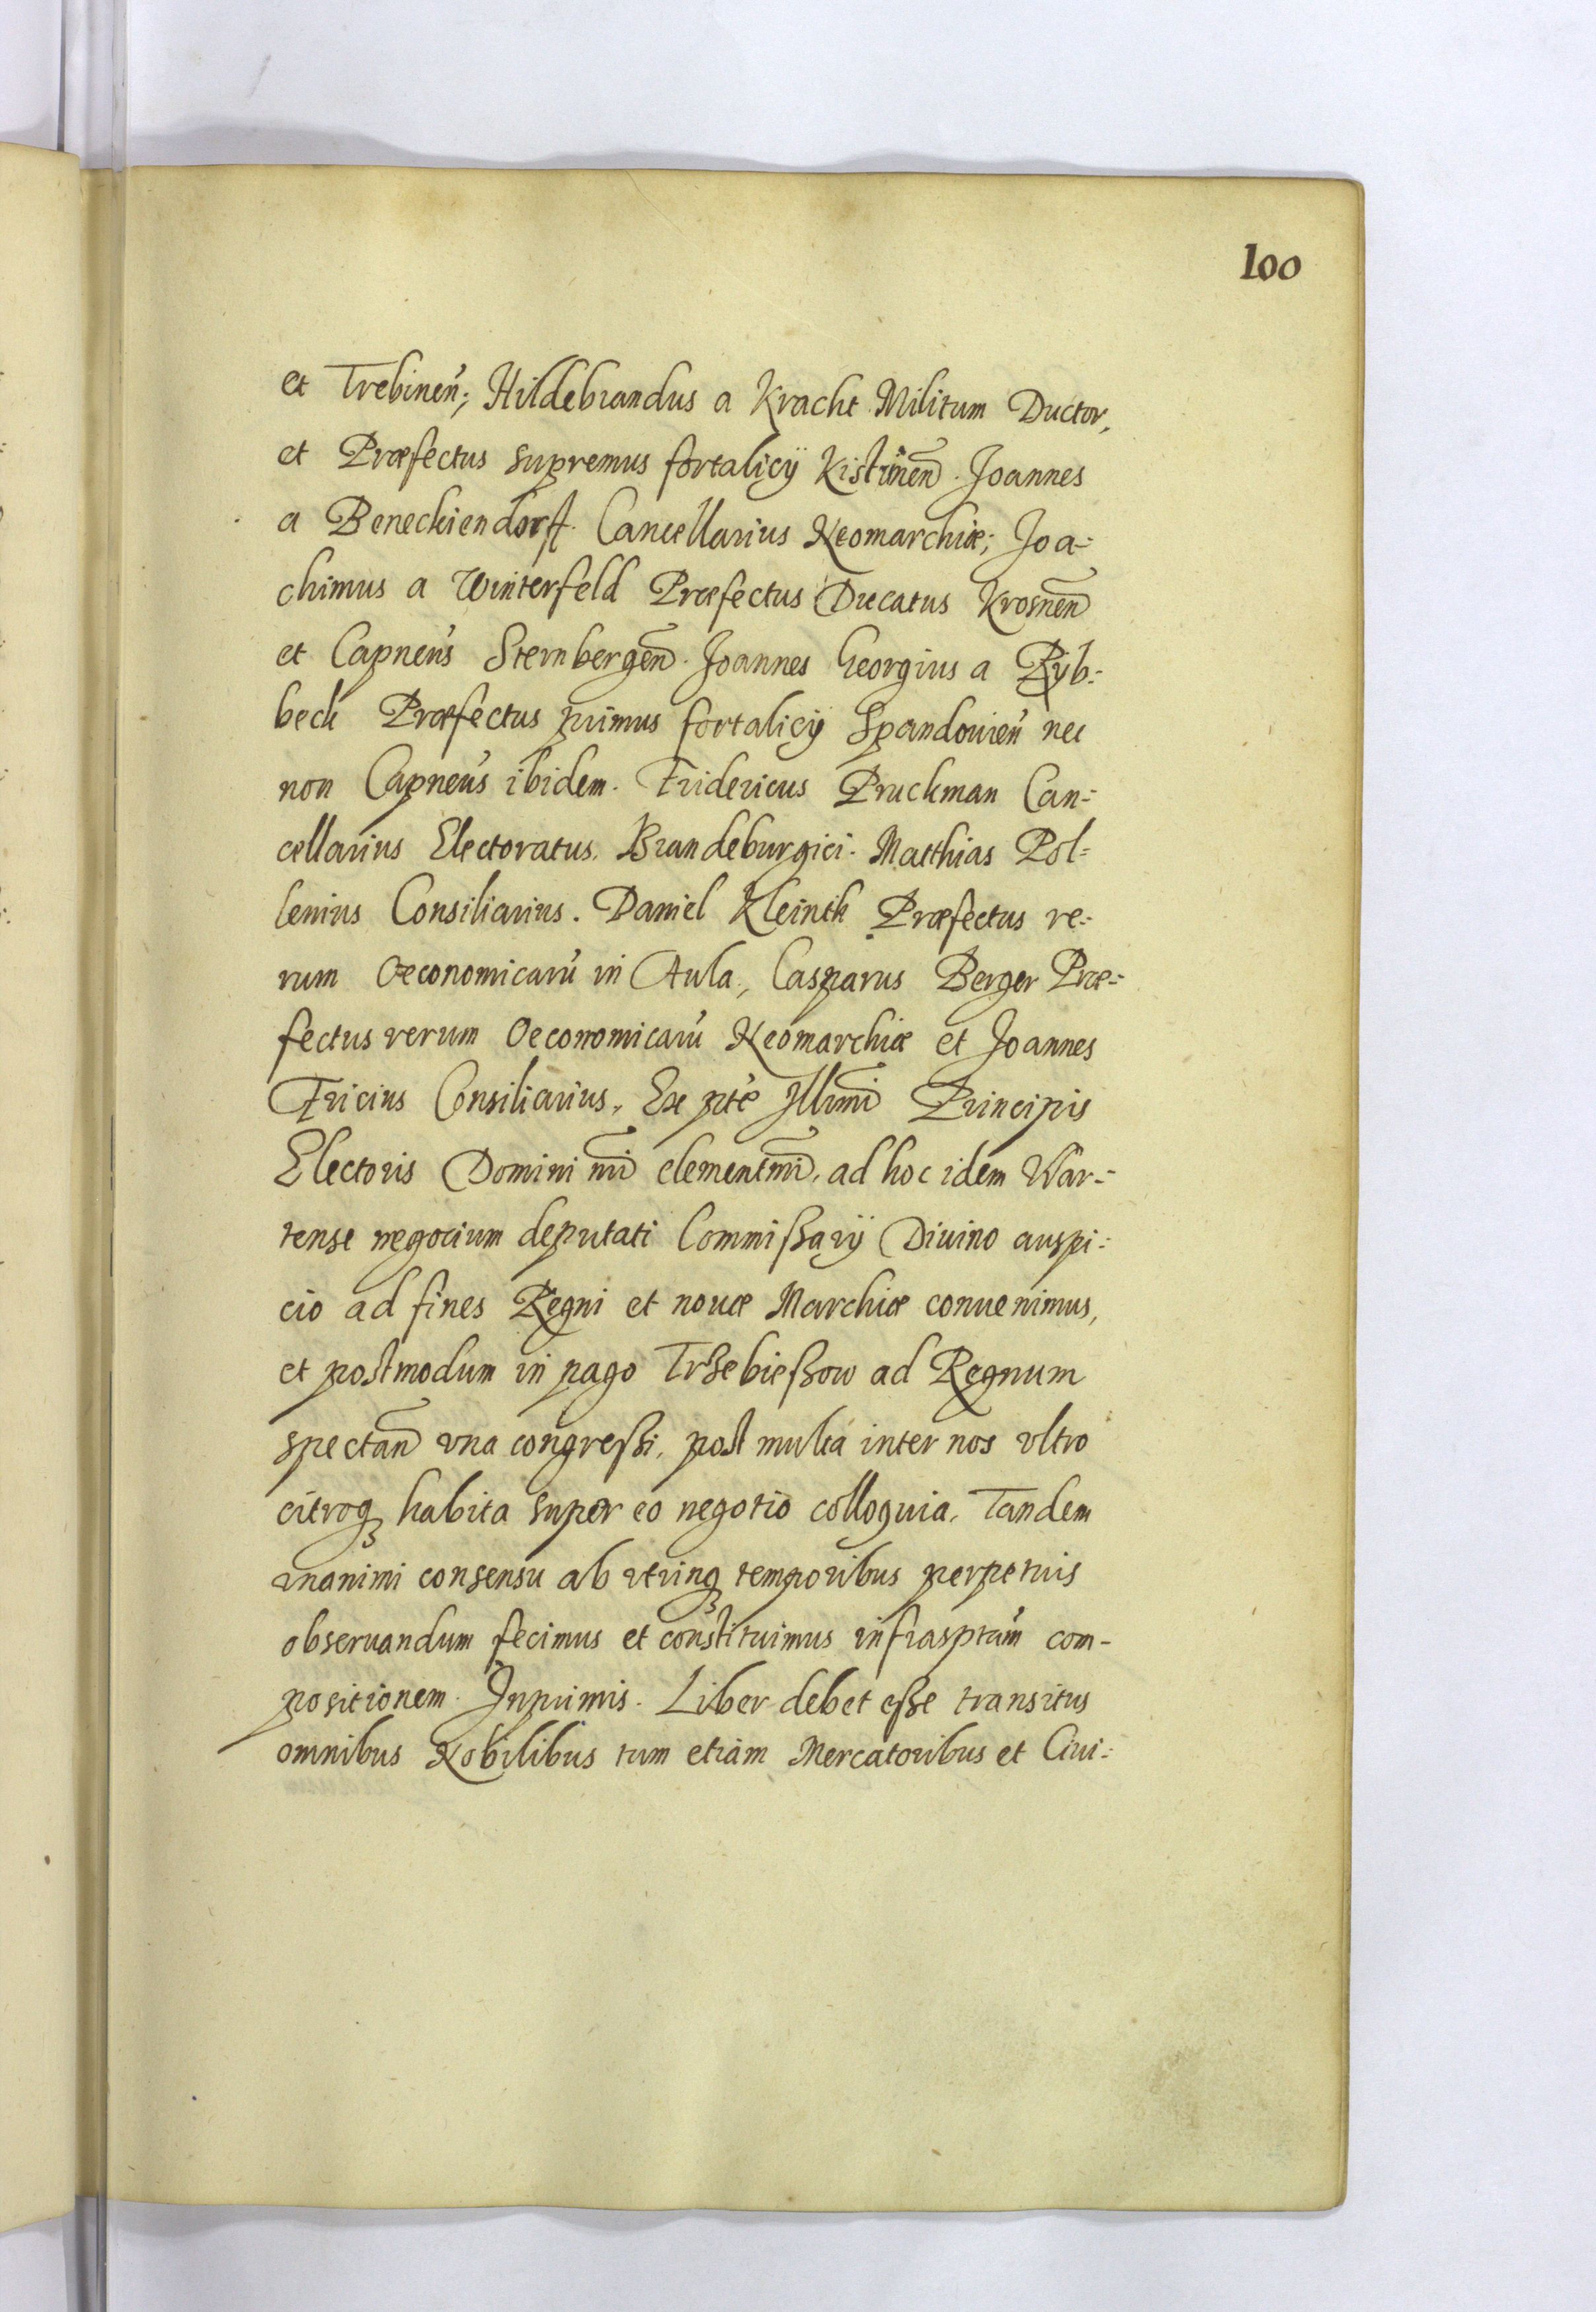 100
et Trebineñ; Hildebrandus a Kracht Militum Ductor,
et Præfectus supremus fortalicÿ Kistrineñ. Joannes
a Beneckiendorff. Cancellarius Neomarchiæ; Joa-
chimus a Winterfeld Præfectus Ducatus Krosneñ
et Capneus Sternbergeñ. Joannes Georgius a Ryb-
beck Præfectus primus fortalicÿ Spandouieñ nec
non Capneus ibidem. Fridericus Pruckman Can-
cellarius Electoratus Brandeburgici. Matthias Pol-
lenius Consiliarius. Daniel Præfectus re-
rum Oeconomicarũ in Aula, Casparus Berger Præ-
fectus rerum Oeconomicarũ Neomarchiæ et Joannes
Fricius Consiliarius. Ex pte Illmi Principis
Electoris Domini nri clementmi, ad hoc idem War-
tense negocium deputati Commißarÿ Diuino auspi-
cio ad fines Regni et nouæ Marchiæ conuenimus,
et postmodum in pago Trzebießow ad Regnum
spectañ vna congreßi, post multa inter nos vltro
citroq habita super eo negotio colloquia. Tandem
vnanimi consensu ab vtrinq temporibus perpetuis
obseruandum fecimus et constituimus infrasptam com-
positionem. Inprimis. Liber debet eße transitus
omnibus Nobilibus tum etiam Mercatoribus et Ciui-